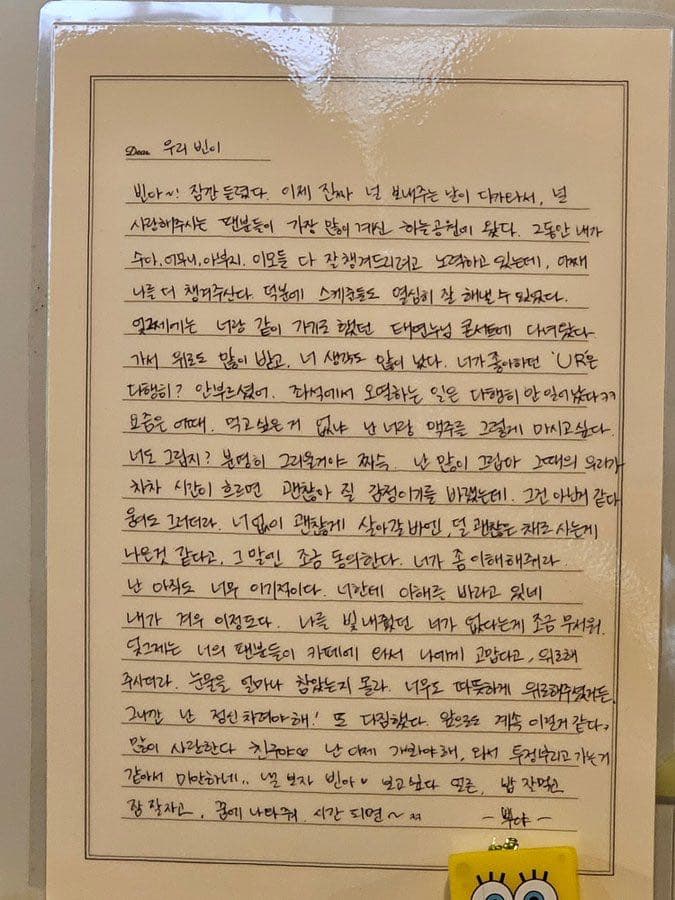 Dear. 우리 빈이
빈아~! 잠깐 들렸다. 이제 진짜 널 보내주는 날이 다가와서, 널
사랑해주시는 팬분들이 가장 많이 계신 하늘공원에 왔다. 그동안 내가
수아, 어머니, 아부지, 이모들 다 잘 챙겨드리려고 노력하고 있는데, 어째
나를 더 챙겨주신다. 덕분에 스케줄들도 열심히 잘 해낼 수 있었다.
엊그제께는 너랑 같이 가기로 했던 태연누님 콘서트에 다녀왔다
가서 위로도 많이 받고, 너 생각도 많이 났다. 너가 좋아하던 'UR은
다행히? 안부르셨어. 좌석에서 오열하는 일은 다행히 안 일어났다ㅋㅋ
요즘은 어때. 먹고싶은거 없냐 난 너랑 맥주를 그렇게 마시고싶다.
너도 그립지? 분명히 그리울거야 짜슥. 난 많이 그립다 그때의 우리가
차차 시간이 흐르면 괜찮아 질 감정이기를 바랬는데. 그건 아닌거 같다
웅이도 그러더라. 너 없이 괜찮게 살아갈 바엔, 덜 괜찮은 채로 사는게
나은것 같다고, 그 말엔 조금 동의한다. 너가 좀 이해해줘라.
난 아직도 너무 이기적이다. 너한테 이해를 바라고 있네
내가 겨우 이정도다. 나를 빛내줬던 너가 없다는게 조금 무서워.
엊그제는 너의 팬분들이 카페에 와서 나에게 고맙다고, 위로해
주시더라. 눈물을 얼마나 참았는지 몰라. 너무도 따뜻하게 위로해주셨거든,
그니깐 난 정신차려야해! 또 다짐했다. 앞으로도 계속 이럴거 같다
많이 사랑한다 친구야♡ 난 이제 가봐야해, 와서 투정부리고 가는거
같아서 미안하네.. 낼 보자 빈아♥ 보고싶다 얼른, 밥 잘먹고
잠 잘자고, 꿈에 나타줘. 시간 되면~